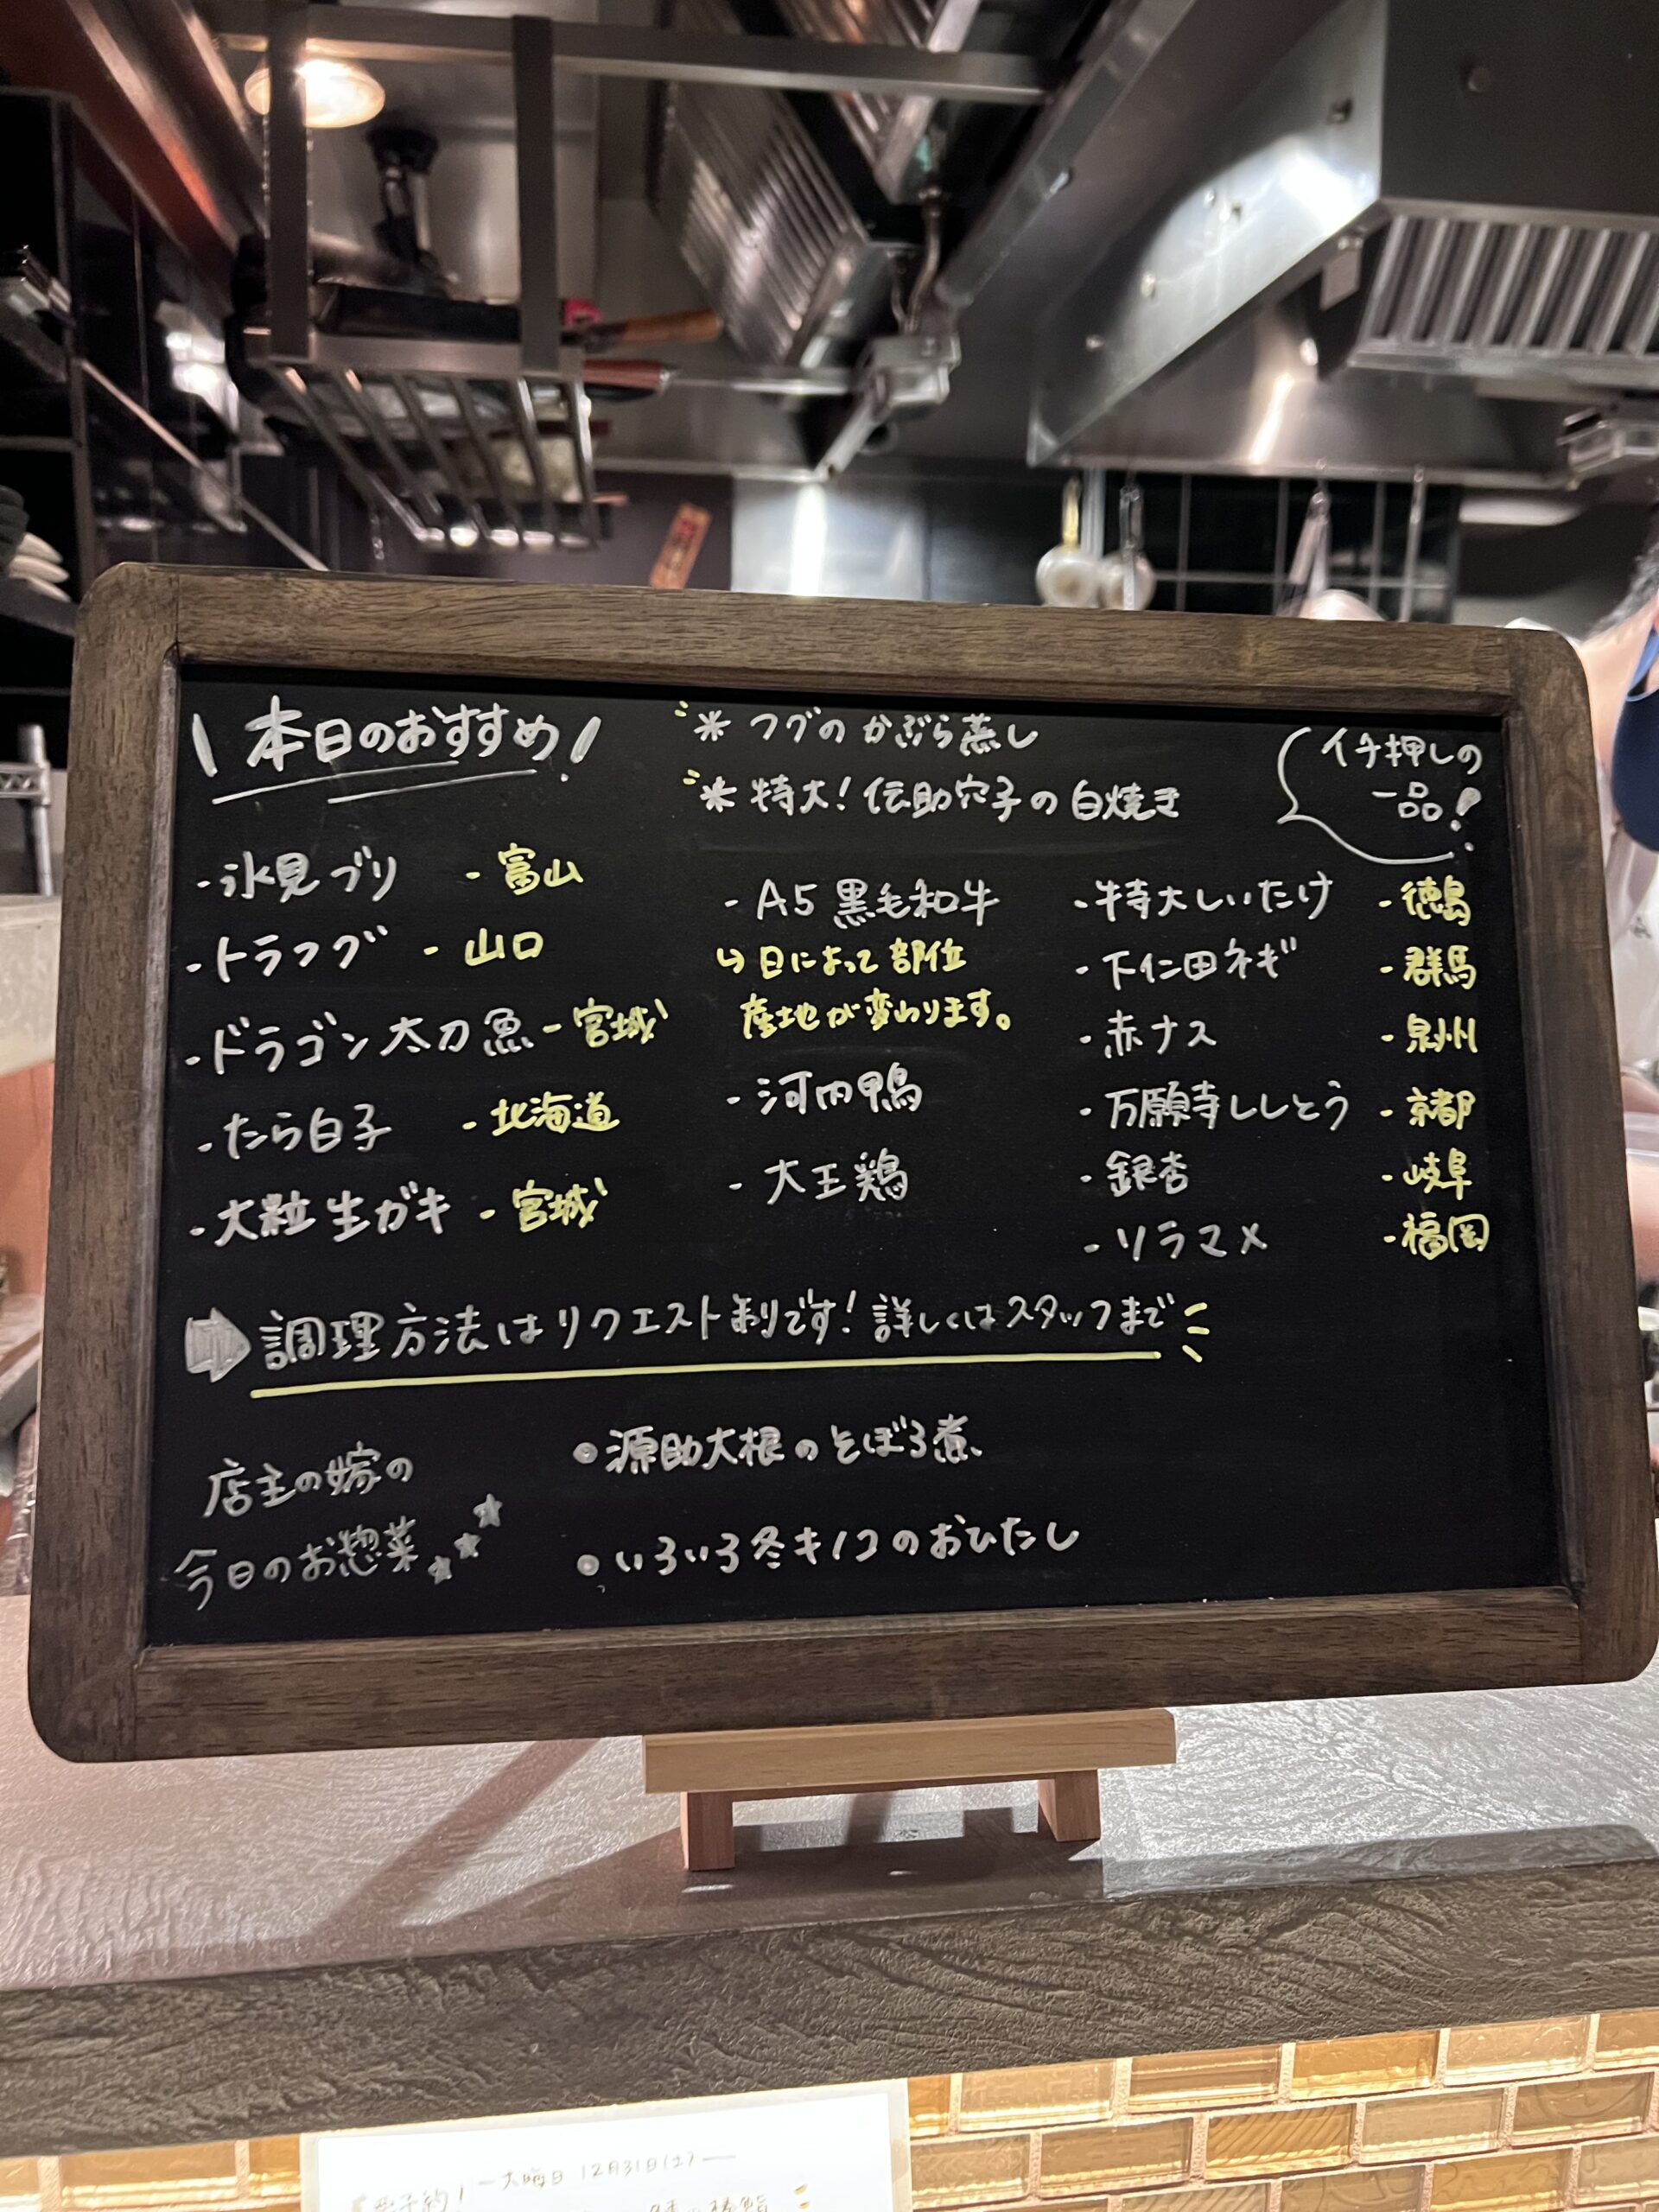 本日のおすすめ!
※ フグの かぶら蒸し
※ 特大! 伝助穴子の白焼き
イチ押しの
一品!
- 氷見ブリ - 富山
- トラフグ - 山口
- ドラゴン太刀魚 - 宮城
- たら白子 - 北海道
- 大粒生ガキ - 宮城
- A5 黒毛和牛
↳ 日によって部位
産地が変わります。
- 河内鴨
- 大王鶏
- 特大しいたけ - 徳島
- 下仁田ネギ - 群馬
- 赤ナス - 泉州
- 万願寺ししとう - 京都
- 銀杏 - 岐阜
- ソラマメ - 福岡
➡ 調理方法はリクエスト制です! 詳しくはスタッフまで
店主の嫁の
今日のお惣菜
◎ 源助大根のそぼろ煮
◎ いろいろ冬キノコのおひたし
大晦日 12月31日(土)